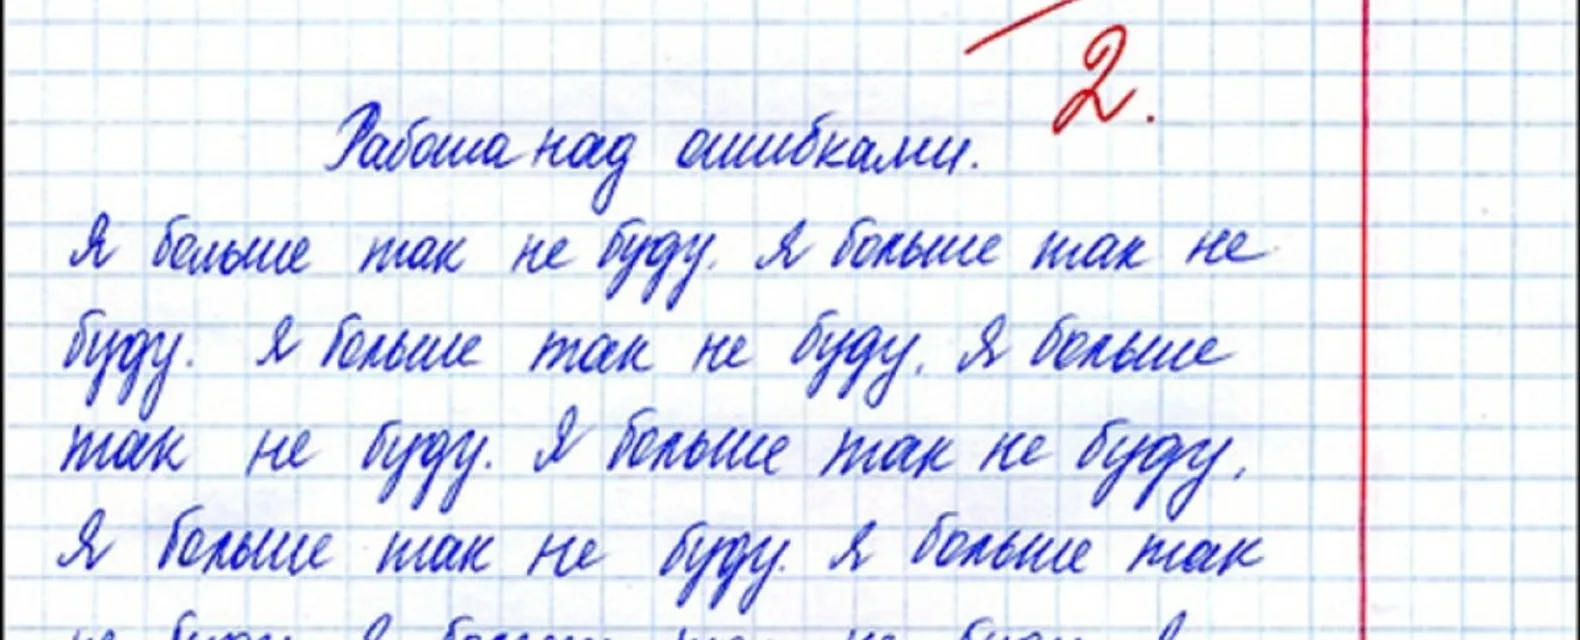 2.
Работа над ошибками.
Я больше так не буду. Я больше так не
буду. Я больше так не буду. Я больше
так не буду. Я больше так не буду.
Я больше так не буду. Я больше так
не буду. Я больше так не буду. Я